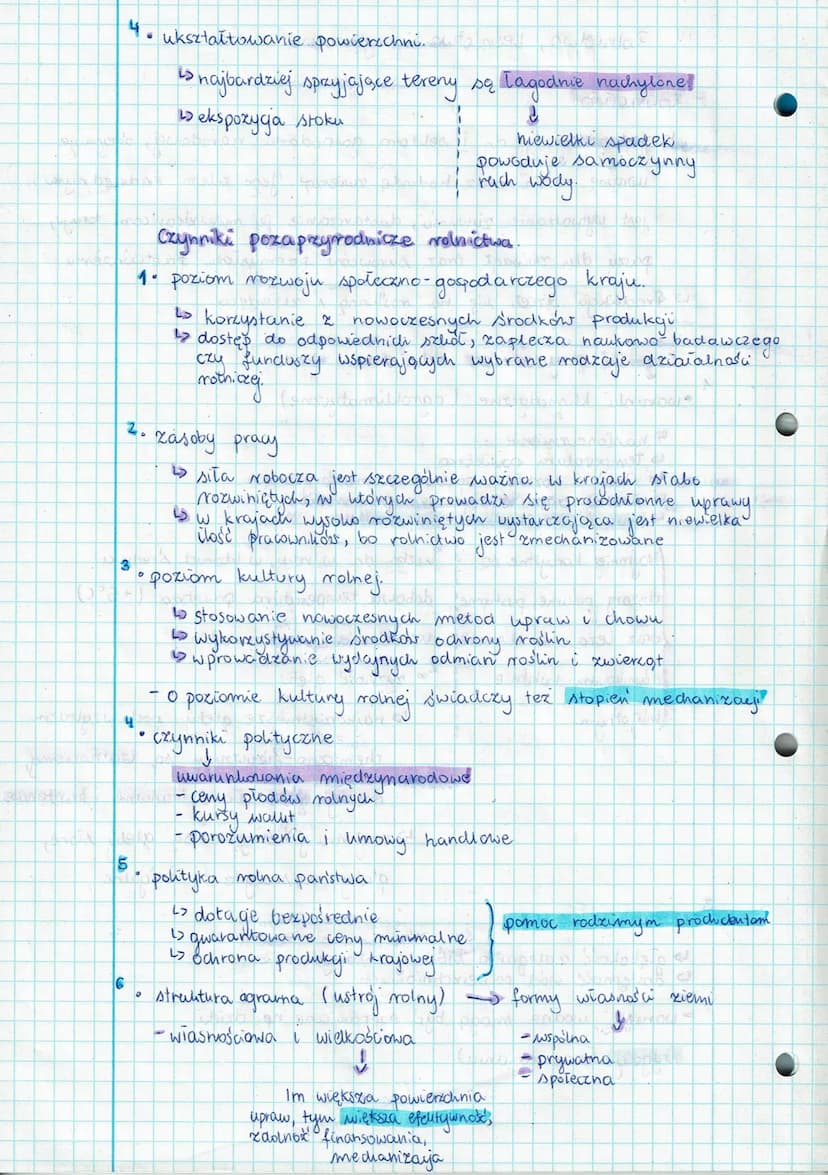 4. ukształtowanie powierzchni.
↳ najbardziej sprzyjające tereny są łagodnie nachylone
↳ ekspozycja stoku
↓
niewielki spadek
powoduje samoczynny
ruch wody.
Czynniki pozaprzyrodnicze rolnictwa.
1. poziom rozwoju społeczno-gospodarczego kraju.
↳ korzystanie z nowoczesnych środków produkcji
↳ dostęp do odpowiednich szkół, zaplecza naukowo-badawczego
czy funduszy wspierających wybrane rodzaje działalności
rolniczej.
2. zasoby pracy
↳ siła robocza jest szczególnie ważna w krajach słabo
rozwiniętych, w których prowadzi się pracochłonne uprawy
↳ w krajach wysoko rozwiniętych wystarczająca jest niewielka
ilość pracowników, bo rolnictwo jest zmechanizowane
3. poziom kultury rolnej.
↳ stosowanie nowoczesnych metod upraw i chowu
↳ wykorzystywanie środków ochrony roślin
↳ wprowadzanie wydajnych odmian roślin i zwierząt
- o poziomie kultury rolnej świadczy też stopień mechanizacji
4. czynniki polityczne
↓
uwarunkowania międzynarodowe
- ceny płodów rolnych
- kursy walut
- porozumienia i umowy handlowe
5. polityka rolna państwa
↳ dotacje bezpośrednie
↳ gwarantowane ceny minimalne } pomoc rodzimym producentom
↳ ochrona produkcji krajowej
6. struktura agrarna (ustrój rolny) → formy własności ziemi
- własnościowa i wielkościowa
↓
- wspólna
- prywatna
- społeczna
↓
Im większa powierzchnia
upraw, tym większa efektywność,
zdolność finansowania,
mechanizacja